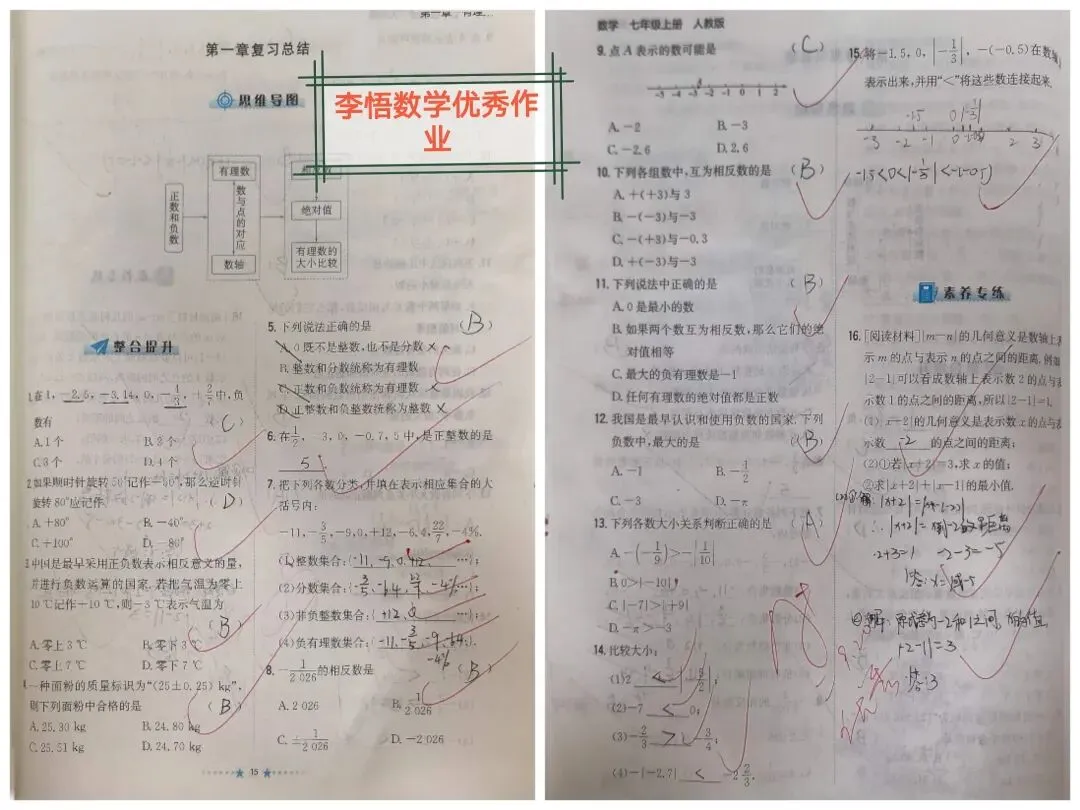 第一章 有理
第一章复习总结
思维导图
李悟数学优秀作
业
正数和负数
有理数
数与点的对应
数轴
绝对值
有理数的
大小比较
整合提升
1.在1,-2.5,-3.14,0,
中,负
数有
(C)
A.1个
C.3个
D.4个
2.如果顺时针旋转
那么逆时针
旋转80°应记作
(D)
A.+80°
B.-40°
C.+100°
D.-80°
中国是最早采用正负数表示相反意义的量,
并进行负数运算的国家.若把气温为零上
10℃记作+10℃,则-3℃表示气温为
(B)
A.零上3℃
B.零下3℃
C.零上7℃
D.零下7℃
一种面粉的质量标识为“(25±0.25) kg”,
则下列面粉中合格的是
(B)
A.25.30 kg
B.24.80 kg
C.25.51 kg
D.24.70 kg
5.下列说法正确的是
(B)
A.0既不是整数,也不是分数 ×
B.整数和分数统称为有理数
C.正数和负数统称为有理数 ×
D.正整数和负整数统称为整数 ×
6.在1/2,-3,0,-0.7,5中,是正整数的是
5
7.把下列各数分类,并填在表示相应集合的大
括号内:
-11,-3/5,-9,0,+12,-6.4,22/7,-4%.
(1)整数集合:{
…};
(2)分数集合:{
-4% …};
(3)非负整数集合:{ +12, 0 …};
(4)负有理数集合:{ -11,-3/5,-9,
-4%
8. -1/2 026的相反数是
(B)
A.2 026
B.1/2 026
C.-1/2 026
D.-2 026
15
数学 七年级上册 人教版
9.点A表示的数可能是
(C)
-5 -4 -3 -2 -1 0 1 2
A.-2
B.-3
C.-2.6
D.2.6
10.下列各组数中,互为相反数的是
(B)
A.+(+3)与3
B.-(-3)与-3
C.-(+3)与-0.3
D.+(-3)与-3
11.下列说法中正确的是
(B)
A.0是最小的数
B.如果两个数互为相反数,那么它们的绝
对值相等
C.最大的负有理数是-1
D.任何有理数的绝对值都是正数
12.我国是最早认识和使用负数的国家.下列
负数中,最大的是
(B)
A.-1
B.-1/2
C.-3
D.-π
13.下列各数大小关系判断正确的是
(A)
A.-(-1/9)>-|1/10|
B.0>|-10|
C.|-7|>|+9|
D.-π>-3
14.比较大小:
(1)2 <
(2)-7 < 0;
(3)-2/3 > -3/4;
(4)-|-2.7| < -2 2/3.
15.将-1.5,0,|-1/3|,-(-0.5)在数
表示出来,并用“<”将这些数连接起来.
-3 -2 -1 0 1 2 3
素养专练
16.[阅读材料]|m-n|的几何意义是数轴上
示m的点与表示n的点之间的距离,例如
|2-1|可以看成数轴上表示数2的点与
示数1的点之间的距离,所以|2-1|=1.
(1)|x-2|的几何意义是表示数x的点与表
示数
的点之间的距离;
(2)①若|x+2|=3,求x的值;
②求|x+2|+|x-1|的最小值.
-2+3=1 -2-3=-5
+2-1|=3